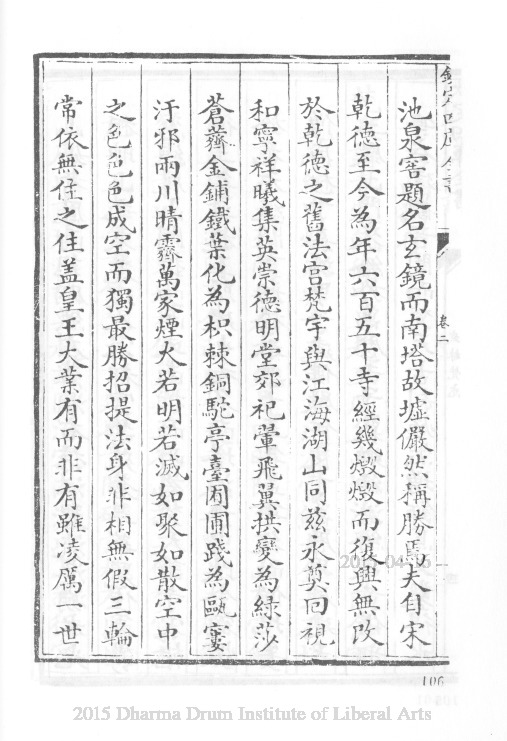 欽定四庫全書
卷二
池泉窖題名玄鏡而南塔故墟儼然稱勝焉夫自宋
乾德至今為年六百五十寺經幾燬燬而復興無改
於乾德之舊法宫梵宇與江海湖山同兹永奠回視
和寧祥曦集英崇德明堂郊祀翬飛翼拱變為緑莎
蒼薺金鋪鐵葉化為枳棘銅駝亭臺囿圃踐為甌窶
汙邪兩川晴靄萬家煙火若明若滅如聚如散空中
之色色色成空而獨最勝招提法身非相無假三輪
常依無住之住盖皇王大業有而非有雖凌厲一世
106
2015 Dharma Drum Institute of Liberal Arts